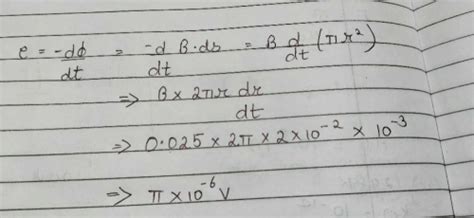 e = -dϕ/dt = -d/dt B·ds = B d/dt (πr²)
⇒ B × 2πr dr/dt
⇒ 0.025 × 2π × 2×10⁻² × 10⁻³
⇒ π × 10⁻⁶ V